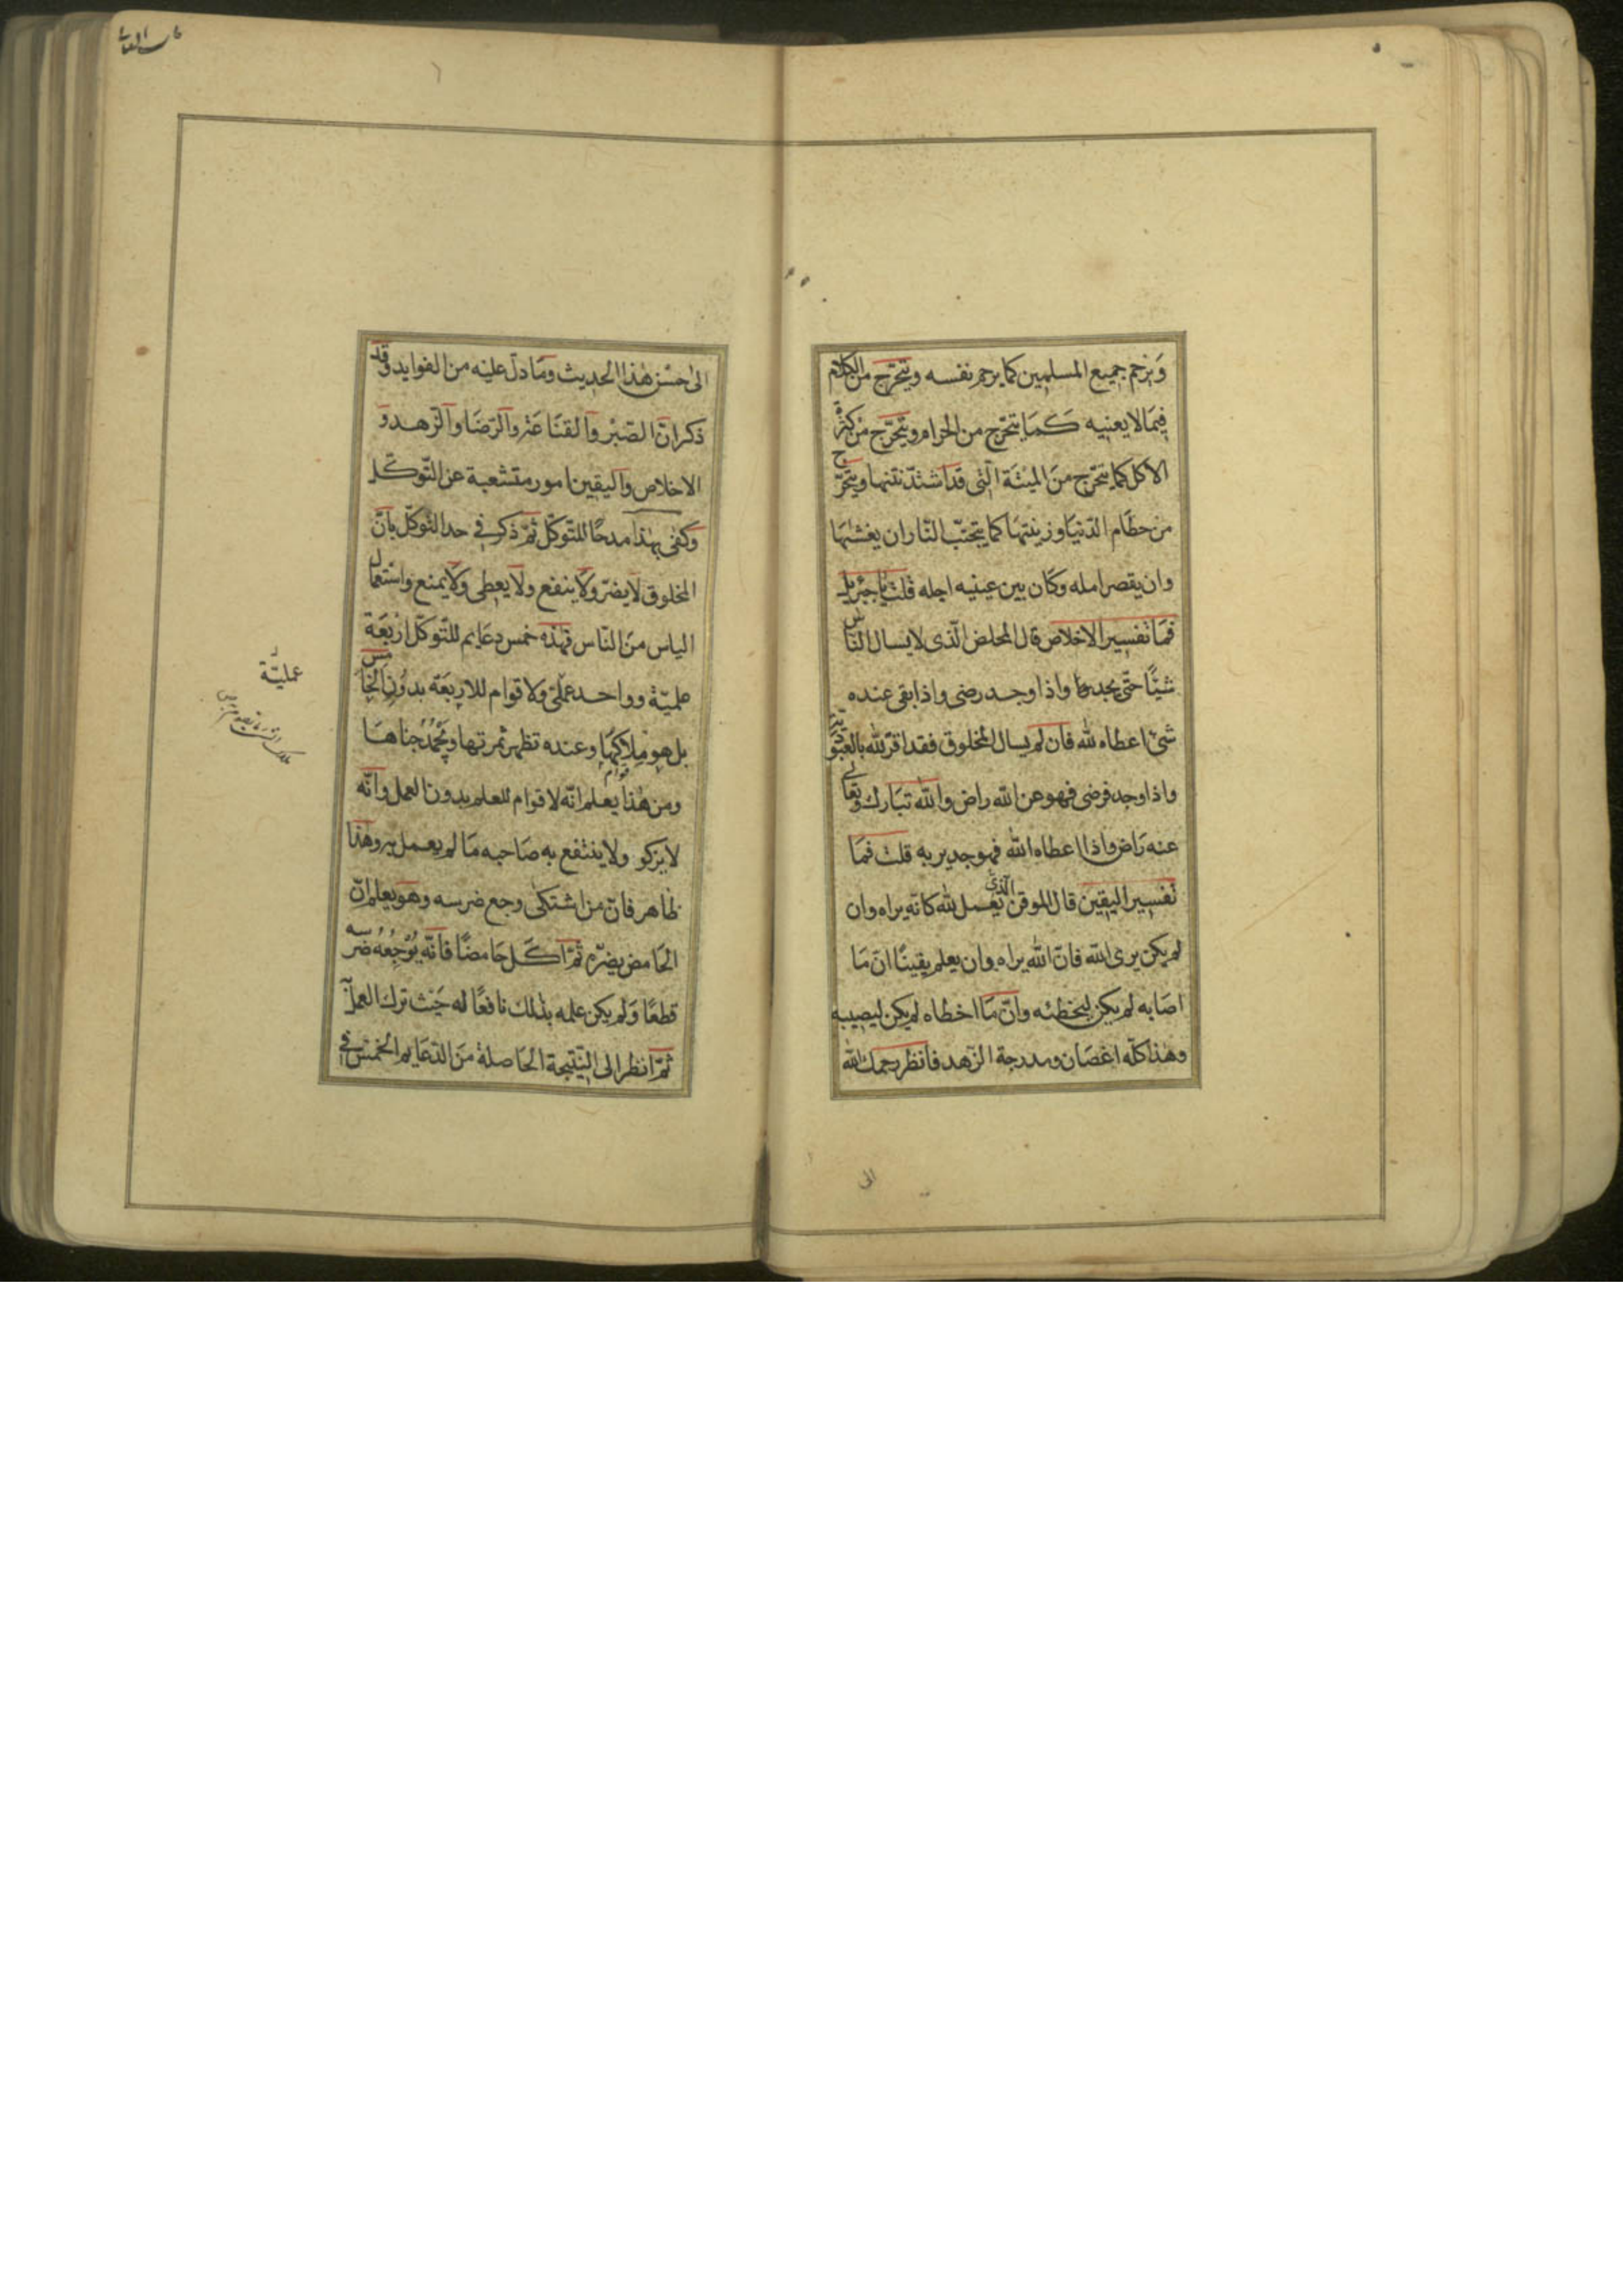 وَيرحم جميع المسلمين كما يرحم نفسه ويتحرّج من الكلام
فيما لا يعنيه كَمَا يتحرّج من الحرام ويتحرّج من كثرة
الاكل كما يتحرّج منَ الميتَة الّتى قد اشتدّ نتنها ويتحرّج
من حطَام الدّنيَا وزينتها كما يتجنّب النّار ان يغشٰيهَا
وان يقصر امله وكَان بين عينيه اجله قلت يا جبرئيل
فمَا تفسير الاخلاص قال المخلص الّذى لا يسال النّاس
شيئًا حتّى يجد وَاذا وجد رضى واذا بقى عنده
شئ اعطاه لله فان لم يسال المخلوق فقد اقرّ لله بالعبوديّة
واذا وجد فرضى فهو عن اللّه راض واللّه تبَارك وتعَالى
عنه رَاض واذا اعطاه اللّه فهو جدير به قلت فمَا
تفسير اليقين قال الموقن الّذى يعمل للّه كانّه يراه وان
لم يكن يرى اللّه فانّ اللّه يراه وان يعلم يقينًا انّ مَا
اصَابه لم يكن ليخطئه وانّ مَا اخطاه لم يكن ليصيبه
وهٰذا كلّه اغصَان ومدرجة الزّهد فانظر رحمك اللّه
الى
الى حسْن هٰذا الحديث ومَا دلّ عليْه من الفوايد وقد
ذكر انّ الصّبْر وَالقنَاعَة وَالرّضَا وَالزّهد وَ
الاخلاص وَاليقين امور متشعبة عن التّوكّل
وكفٰى بهٰذا مدحًا للتّوكّل ثمّ ذكر فى حد التّوكّل بانّ
المخلوق لَا يضرّ ولَا ينفع ولَا يعطى ولَا يمنع واستعمال
الياس منَ النّاس فهٰذه خمس دعَايم للتّوكّل اربَعَة
علميّة وواحد عملىّ ولا قوام للاربَعَة بدوُن الخَامس
بل هو مِلَاكهَا وعنده تظهر ثمرتها ويُحْمَدُ جناهَا
ومن هٰذا يعلم انّه لا قوام للعلم بدون العمل وانّه
لا يزكو ولا ينتفع به صَاحبه مَا لم يعمل به وهٰذا
ظاهر فانّ من اشتكٰى وجع ضرسه وهو يعلم انّ
الحَامض يضرّه ثمّ اكَل حَامضًا فانّه يُوْجِعُهُ ضرسه
قطعًا وَلم يكن علمه بذٰلك نافعًا له حَيث ترك العمل
ثمّ انظر الى النّتيجة الحَاصلة منَ الدّعَايم الخمسْ فى
عمليّة